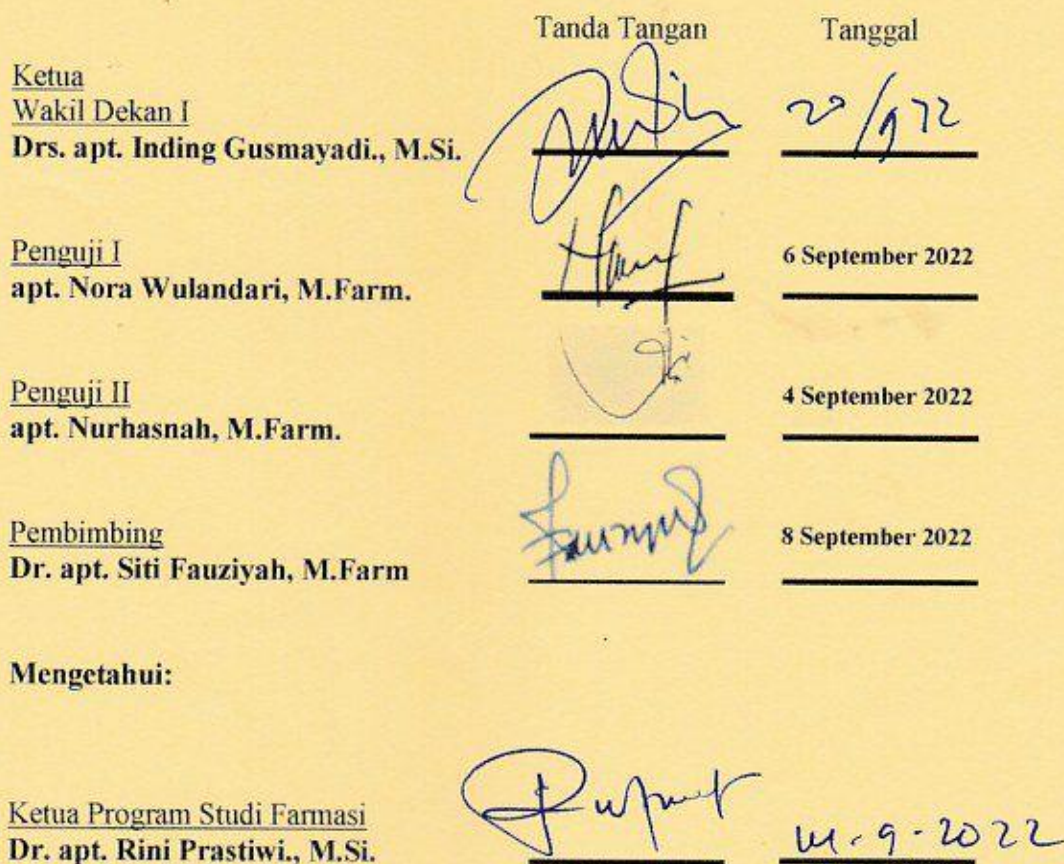 Tanda Tangan Tanggal
Ketua
Wakil Dekan I
Drs. apt. Inding Gusmayadi., M.Si.
Penguji I
apt. Nora Wulandari, M.Farm.
6 September 2022
Penguji II
apt. Nurhasnah, M.Farm.
4 September 2022
Pembimbing
Dr. apt. Siti Fauziyah, M.Farm
8 September 2022
Mengetahui:
Ketua Program Studi Farmasi
Dr. apt. Rini Prastiwi., M.Si.